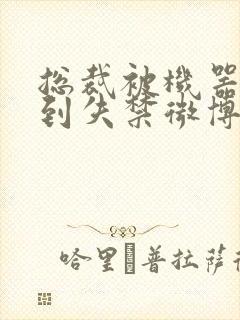 总裁被机器
到失禁微博
哈里 普拉萨